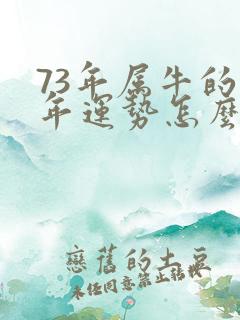 73年属牛的
年運勢怎麼
戀舊的土豆
未任同意禁止轉載